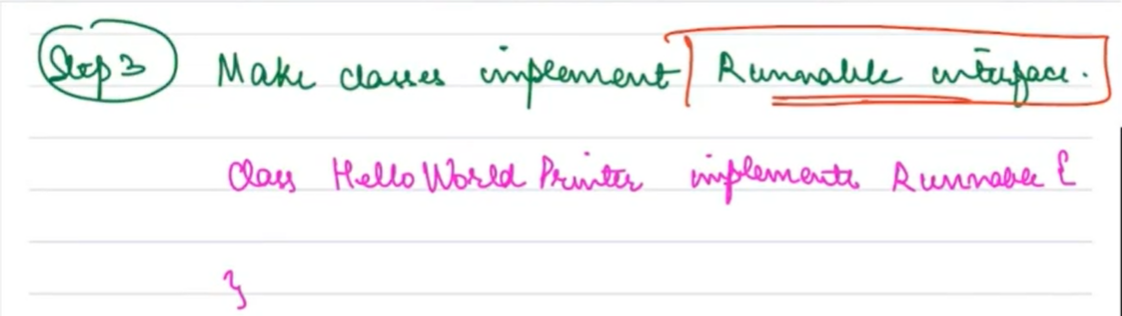 Step 3 Make classes implement Runnable interface.
class HelloWorldPrinter implements Runnable {
}